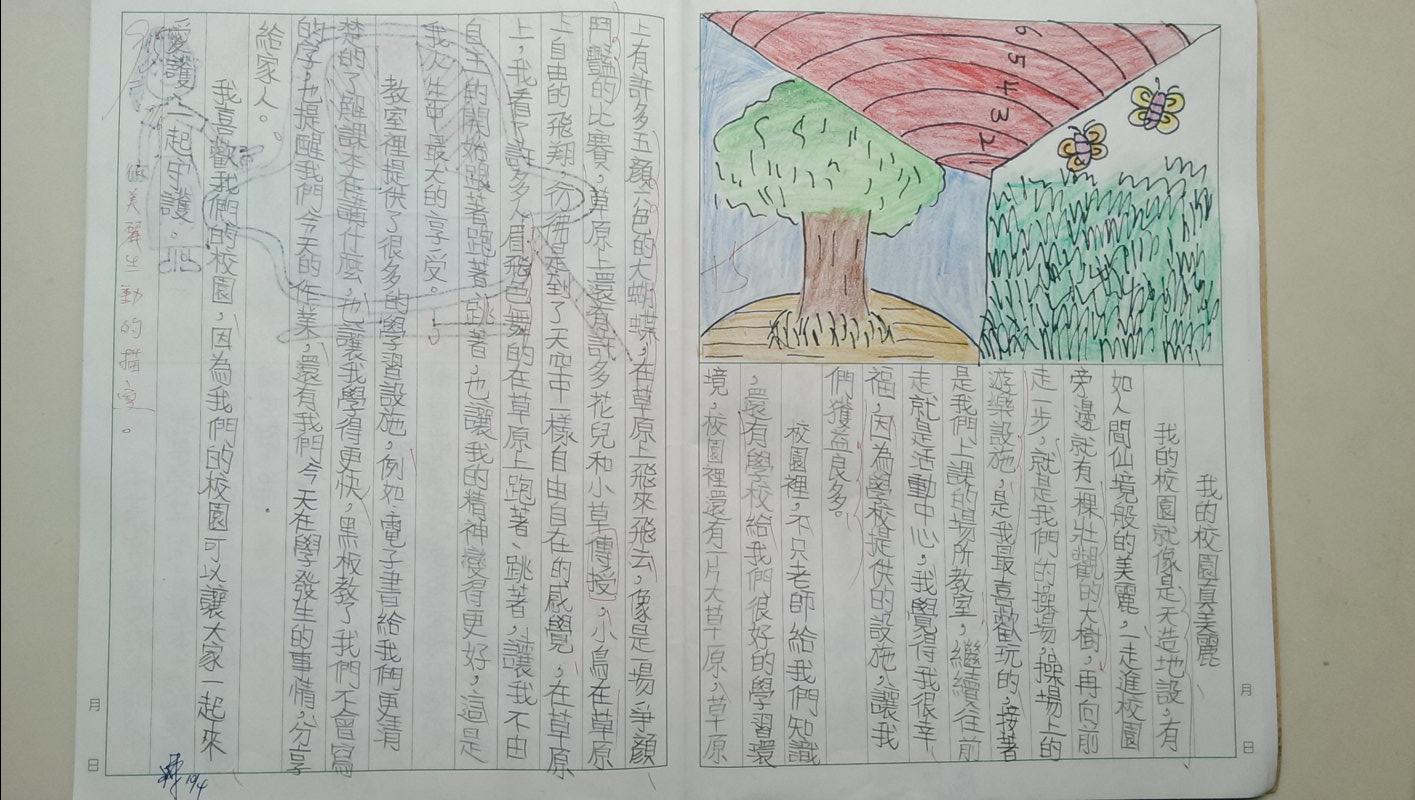 6 5 4 3 2 1
我的校園真美麗
我的校園就像是天造地設，有
如人間仙境般的美麗，一走進校園
旁邊就有一棵壯觀的大樹，再向前
走一步，就是我們的操場，操場上的
游樂設施，是我最喜歡玩的，接著
是我們上課的場所教室，繼續往前
走就是活動中心，我學得我很幸
福，因為學校提供的設施，讓我
們獲益良多。
校園裡，不只老師給我們知識
，還有學校給我們很好的學習環
境，校園裡還有一片大草原，草原
上有許多五顏六色的大蝴蝶，在草原上飛來飛去，像是一場爭顏
鬥豔的比賽，草原上還有許多花兒和小草傳授，小鳥在草原
上自由的飛翔，彷彿是到了天空中一樣自由自在的感覺，在草原
上，我看了許多人眉飛色舞的在草原上跑著、跳著，讓我不由
自主的開始跟著跑著、跳著，也讓我的精神變得更好，這是
我人生中最大的享受。
教室裡提供了很多的學習設施，例如：電子書給我們更清
楚的了解課本在講什麼，也讓我學得更快，黑板教了我們不會寫
的字，也提醒我們今天的作業，還有我們今天在學發生的事情，分享
給家人。
我喜歡我們的校園，因為我們的校園可以讓大家一起來
愛護、一起守護。
美麗生動的描寫。
10/4
月 日
月 日